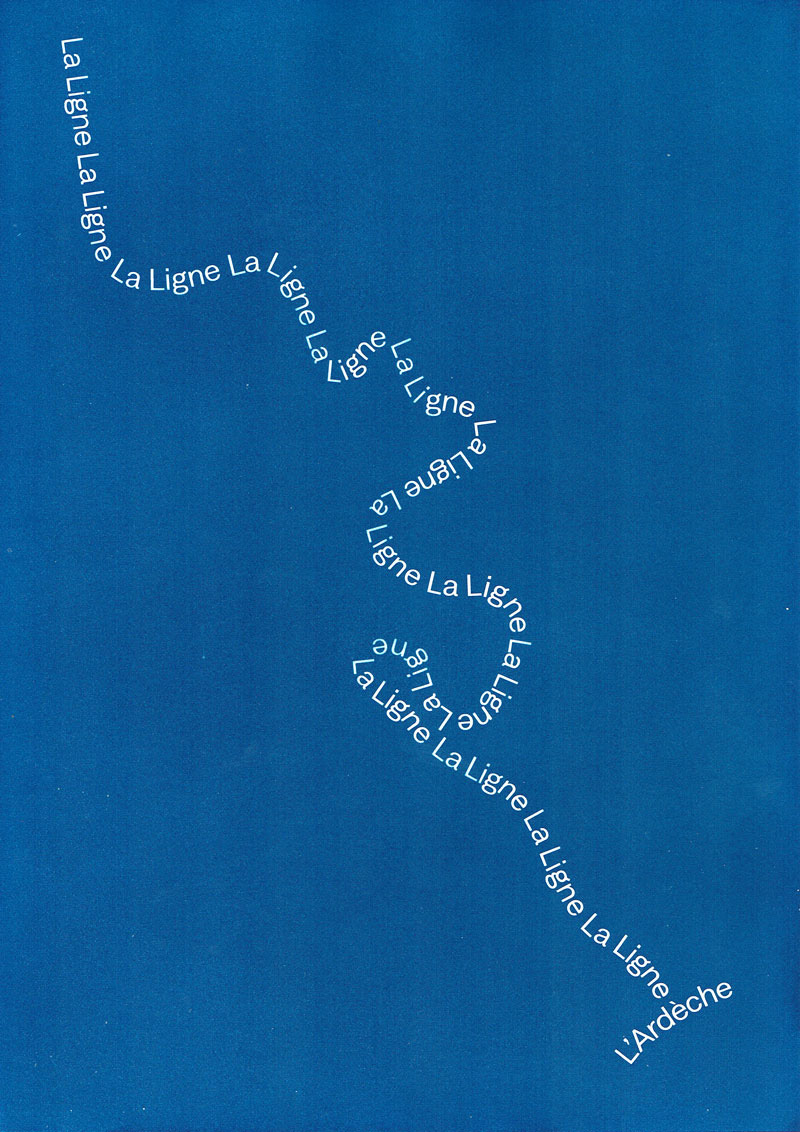 La Ligne La Ligne La Ligne La Ligne La Ligne La Ligne La Ligne La Ligne La Ligne La Ligne La Ligne La Ligne La Ligne La Ligne La Ligne
L’Ardèche